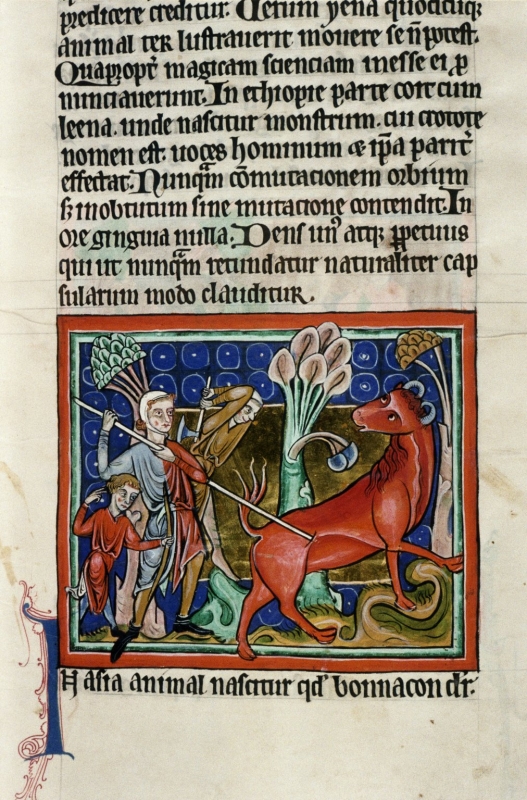 predicere creditur. Verum yena quodcūq;
animal ter lustrauerit mouere se ñ potest.
Quapropt̄ magicam scienciam inesse ei ꝓ
nunciauerunt. In ethiopie parte coit cum
leena. unde nascitur monstrum. cui crocote
nomen est. uoces hominum & ip̄a parit̄
effectat. Nunqͣm cōmutacionem orbium
s; inobtutum sine mutacione contendit. In
ore gingiua nulla. Dens un᷒ atq; ꝑpetuus
qui ut nunqͣm retundatur naturaliter cap
sularum modo clauditur.
IN asia animal nascitur qd̓ bonnacon dr̄: